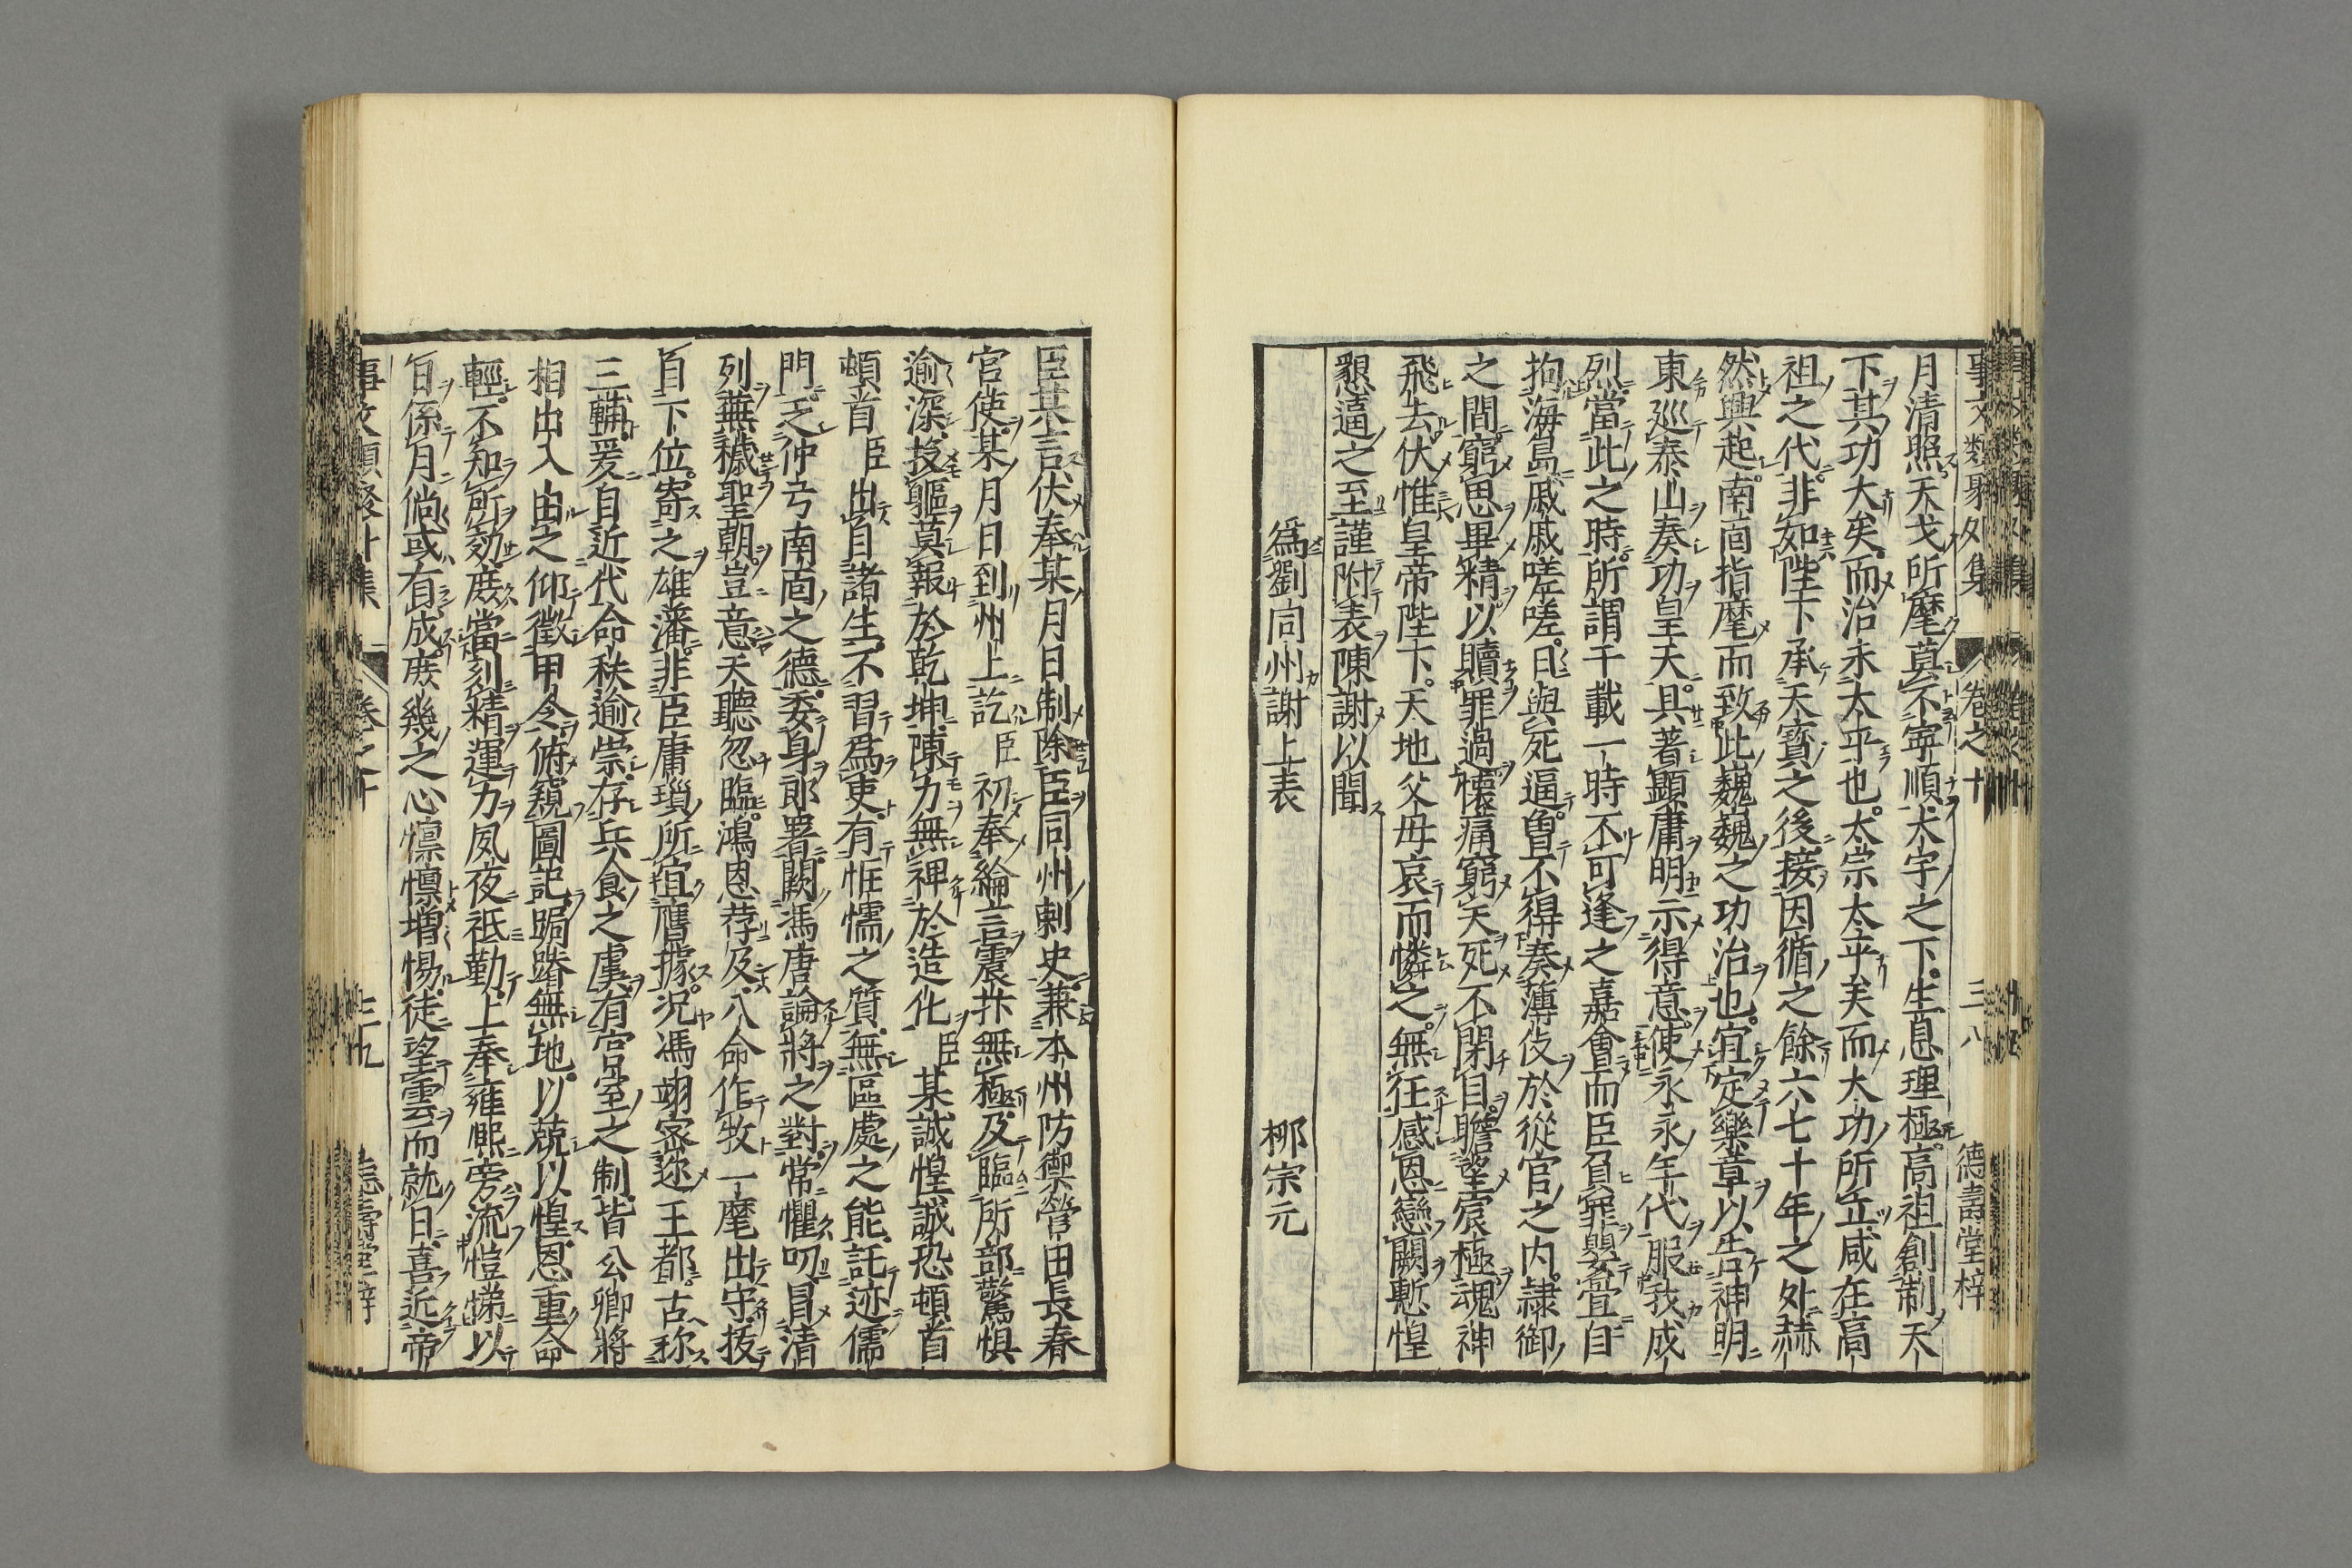 事文類聚外集 卷之十 三八 德壽堂梓
月清照天戈所麾莫不寧順大宇之下生息理極高祖創制天
下其功大矣而治未太平也太宗太平矣而大功所立咸在高
祖之代非如陛下承天寶之後接因循之餘六七十年之外赫
然興起南面指麾而致此巍巍之功治也宜定樂章以告神明
東巡泰山奏功皇天具著顯庸明示得意使永永年代服我成
烈當此之時所謂千載一時不可逢之嘉會而臣負罪嬰舋自
拘海島戚戚嗟嗟日與死逼曽不得奏薄伎於從官之内隷御
之間窮思畢精以贖罪過懐痛窮天死不閉目瞻望宸極魂神
飛去伏惟皇帝陛下天地父母哀而憐之無任感恩戀闕慙惶
懇逼之至謹附表陳謝以聞
為劉同州謝上表 柳宗元
臣某言伏奉某月日制除臣同州刺史兼本州防禦營田長春
宮使某月日到州上訖臣初奉綸言震抃無極及臨所部驚惧
逾深投軀莫報於乾坤陳力無裨於造化臣某誠惶誠恐頓首
頓首臣出自諸生不習為吏有恇懦之質無區處之能託迹儒
門乏仲弓南面之德委身郎署闕馮唐論將之對常懼叨冒清
列蕪穢聖朝豈意天聽忽臨鴻恩荐及八命作牧一麾出守抜
自下位寄之雄藩非臣庸瑣所宜膺據况馮翊密迩王都古称
三輔爰自近代命秩逾崇存兵食之虞有宮室之制皆公卿將
相出入由之仰徵甲令俯窺圖記跼蹐無地以兢以惶恩重命
輕不知所効庻當刻精運力夙夜祗勤上奉雍熈旁流愷悌以
日係月倘或有成庻幾之心懔懔増惕徒望雲而就日喜近帝
事文類聚外集 卷之十 三九 德壽堂梓